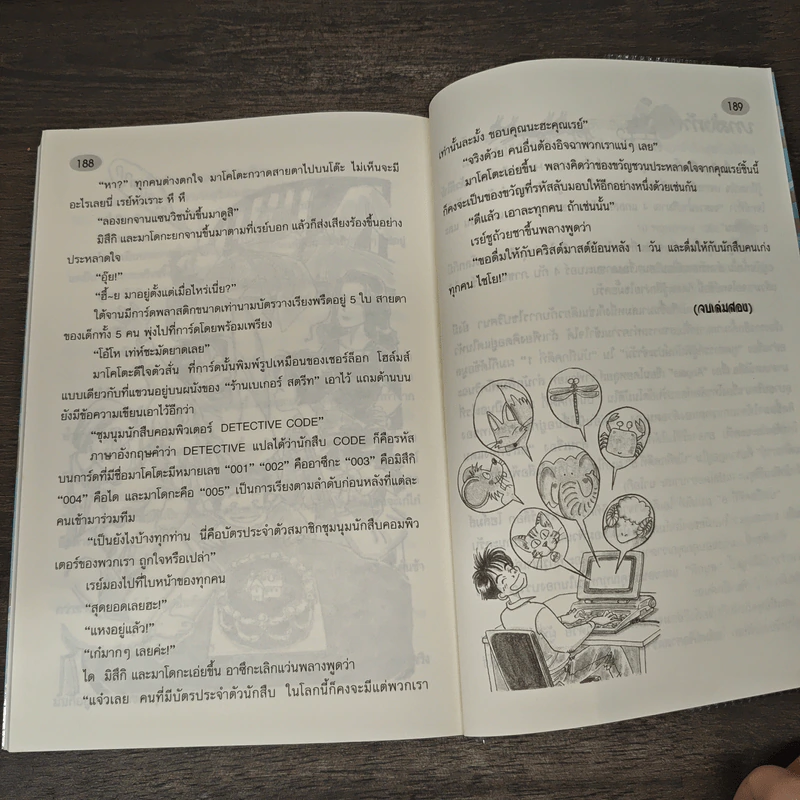 188
“หา?” ทุกคนต่างตกใจ มาโคโตะกวาดสายตาไปบนโต๊ะ ไม่เห็นจะมี
อะไรเลยนี่ เรย์หัวเราะ หึ หึ
“ลองยกจานแซนวิชนั่นขึ้นมาดูสิ”
มิสึกิ และมาโดกะยกจานขึ้นมาตามที่เรย์บอก แล้วก็ส่งเสียงร้องขึ้นอย่าง
ประหลาดใจ
“อุ๊ย!”
“ฮี้~ย มาอยู่ตั้งแต่เมื่อไหร่เนี่ย?”
ใต้จานมีการ์ดพลาสติกขนาดเท่านามบัตรวางเรียงพรืดอยู่ 5 ใบ สายตา
ของเด็กทั้ง 5 คน พุ่งไปที่การ์ดโดยพร้อมเพรียง
“โอ้โห เท่ห์ชะมัดยาดเลย”
มาโคโตะดีใจตัวสั่น ที่การ์ดนั้นพิมพ์รูปเหมือนของเชอร์ล็อก โฮล์มส์
แบบเดียวกับที่แขวนอยู่บนผนังของ “ร้านเบเกอร์ สตรีท” เอาไว้ แถมด้านบน
ยังมีข้อความเขียนเอาไว้อีกว่า
“ชุมนุมนักสืบคอมพิวเตอร์ DETECTIVE CODE”
ภาษาอังกฤษคำว่า DETECTIVE แปลได้ว่านักสืบ CODE ก็คือรหัส
บนการ์ดที่มีชื่อมาโคโตะมีหมายเลข “001” “002” คืออาซึกะ “003” คือมิสึกิ
“004” คือได และมาโดกะคือ “005” เป็นการเรียงตามลำดับก่อนหลังที่แต่ละ
คนเข้ามาร่วมทีม
“เป็นยังไงบ้างทุกท่าน นี่คือบัตรประจำตัวสมาชิกชุมนุมนักสืบคอมพิว
เตอร์ของพวกเรา ถูกใจหรือเปล่า”
เรย์มองไปที่ใบหน้าของทุกคน
“สุดยอดเลยฮะ!”
“แหงอยู่แล้ว!”
“เก๋มากๆ เลยค่ะ!”
ได มิสึกิ และมาโดกะเอ่ยขึ้น อาซึกะเลิกแว่นพลางพูดว่า
“แจ๋วเลย คนที่มีบัตรประจำตัวนักสืบ ในโลกนี้ก็คงจะมีแต่พวกเรา
189
เท่านั้นละมั้ง ขอบคุณนะฮะคุณเรย์”
“จริงด้วย คนอื่นต้องอิจฉาพวกเราแน่ๆ เลย”
มาโคโตะเอ่ยขึ้น พลางคิดว่าของขวัญชวนประหลาดใจจากคุณเรย์ชิ้นนี้
ก็คงจะเป็นของขวัญที่รหัสลับมอบให้อีกอย่างหนึ่งด้วยเช่นกัน
“ดีแล้ว เอาละทุกคน ถ้าเช่นนั้น”
เรย์ชูถ้วยชาขึ้นพลางพูดว่า
“ขอดื่มให้กับคริสต์มาสต์ย้อนหลัง 1 วัน และดื่มให้กับนักสืบคนเก่ง
ทุกคน ไชโย!”
(จบเล่มสอง)